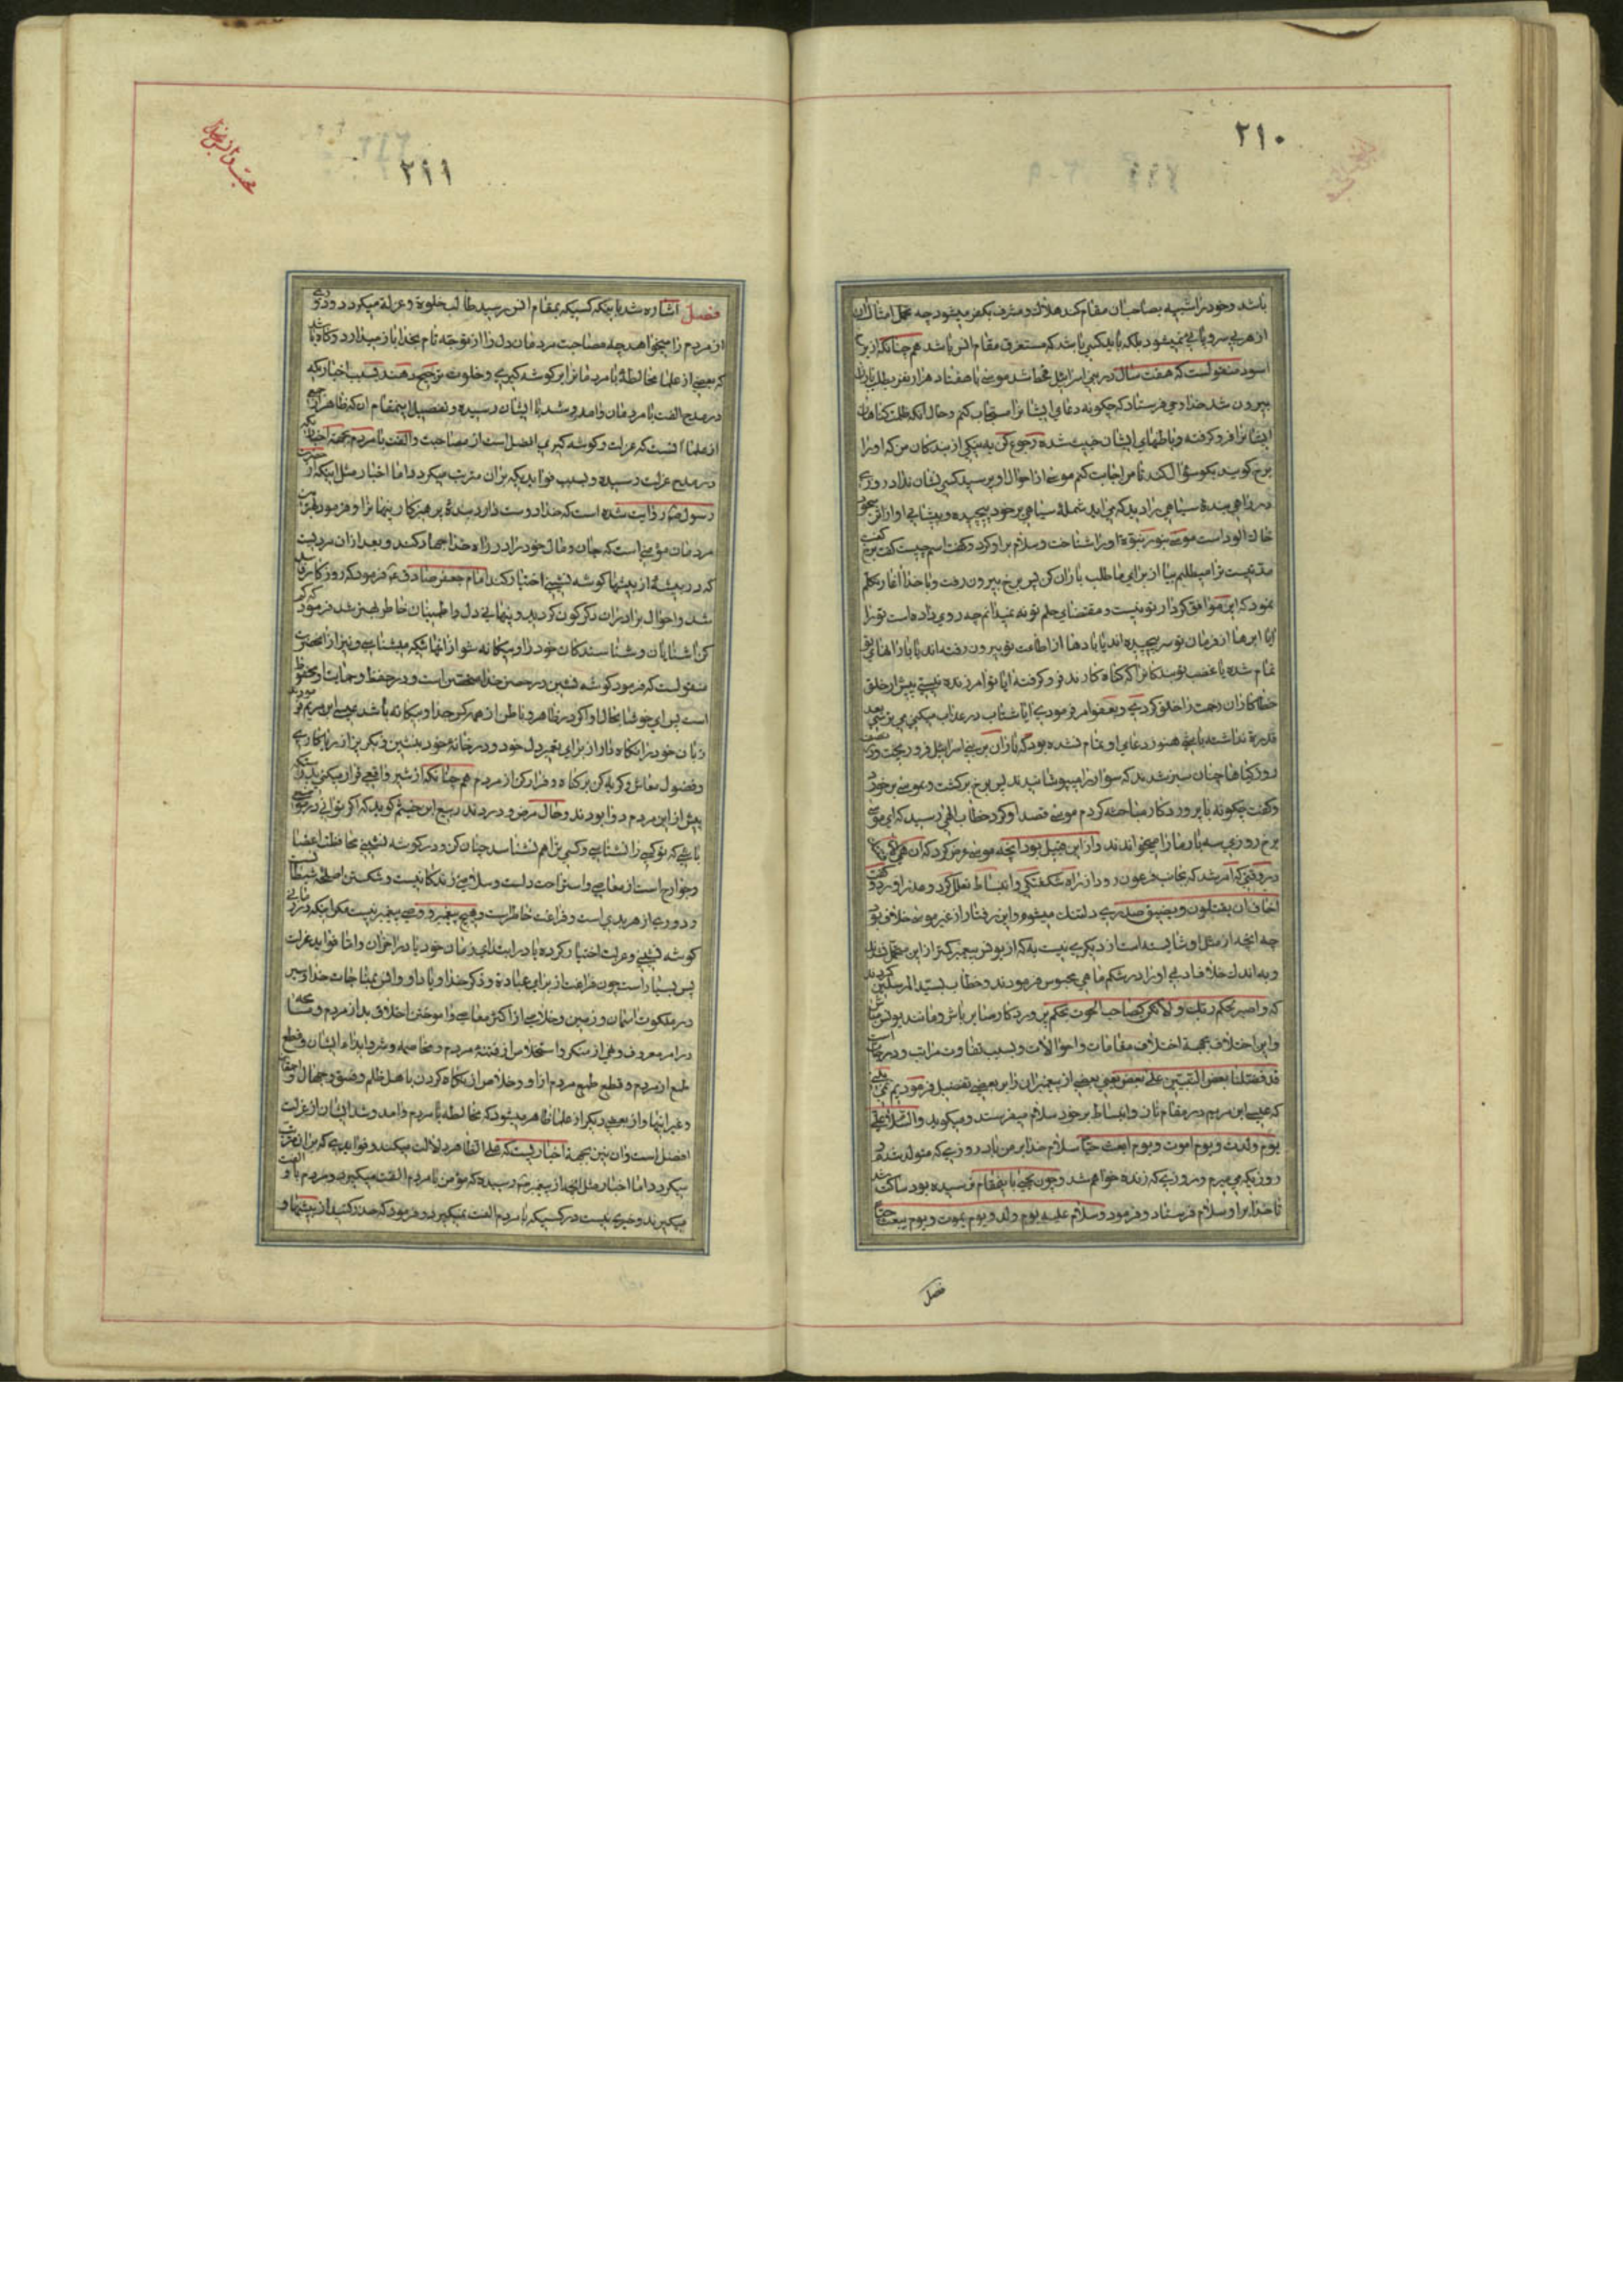 ۲۱۰
باشد و خود را شبیه بصاحبان مقام کند هلاک و مشرف بکفر میشود چه تحمل امثال آن
از هر بی سر و پائی نمیشود بلکه باید کسی باشد که مستغرق مقام انس باشد همچنانکه از برخ
اسود منقولست که هفت سال در بنی اسرائیل قحط شد موسی با هفتاد هزار نفر بطلب باران
بیرون شد خدا وحی فرستاد که چگونه دعای ایشانرا مستجاب کنم و حال آنکه ظلمت گناهان
ایشانرا فرو گرفته و باطنهای ایشان خبیث شده رجوع کن به یکی از بندگان من که او را
برخ گویند بگو سؤال کند تا من اجابت کنم موسی از احوال او پرسید کسی نشان نداد روزی
در راهی بندهٔ سیاهی را دید که می آید شملهٔ سیاهی بر خود پیچیده و پیشانی او از اثر سجود
خاک آلود است موسی بنور نبوة او را شناخت و سلام بر او کرد و گفت اسم چیست گفت برخ گفت
مدتیست ترا میطلبم بیا از برای ما طلب باران کن پس برخ بیرون رفت و با خدا آغاز تکلم
نمود که این موافق کردار تو نیست و مقتضای حلم تو نه نمیدانم چه روی داده است تو را
آیا ابرها از فرمان تو سر پیچیده اند یا بادها از اطاعت تو بیرون رفته اند یا بارانهای تو
تمام شده یا غضب تو بندگانرا که گناه کارند فرو گرفته آیا تو آمرزنده نیستی پیش از خلق
خطاکاران رحمت را خلق کردی و بعفو امر فرمودی آیا شتاب در عذاب میکنی می ترسی بعد
قدرة نداشته باشی هنوز دعای او تمام نشده بود که باران بر بنی اسرائیل فرو ریخت و در نصف
روز گیاهها چنان سبز شدند که سوار را میپوشانیدند پس برخ برگشت و موسی بر خورد
و گفت چگونه با پروردگار مباحثه کردم موسی قصد او کرد خطاب الهی رسید که ای موسی
برخ روزی سه بار ما را میخنداند و از این قبیل بود آنچه موسی عرض کرد که ان هی الا فتنتک
در وقتی که امر شد که بجانب فرعون رود از راه شگفتگی و انبساط تعلل کرد و عذر آورد و گفت
اخاف ان یقتلون و یضیق صدری دلتنگ میشوم و این رفتار از غیر موسی خلاف بود
چه آنچه از مثل او شایسته است از دیگری نیست بلکه از یونس پیغمبر کمتر از این متحمل نشدند
و به اندک خلاف ادبی او را در شکم ماهی محبوس فرمودند و خطاب بسید المرسلین کردند
که و اصبر بحکم ربک و لا تکن کصاحب الحوت بحکم پروردگار صابر باش و مانند یونس مباش
و این اختلاف بجهة اختلاف مقامات و احوالات و بسبب تفاوت مراتب و درجات است
قد فضلنا بعض النبیین علی بعض یعنی بعضی از پیغمبران را بر بعضی تفضیل فرمودیم
که عیسی ابن مریم در مقام ناز و انبساط بر خود سلام میفرستد و میگوید و السلام علی
یوم ولدت و یوم اموت و یوم ابعث حیا سلام خدا بر من باد روزی که متولد شدم و
روزیکه می میرم و روزی که زنده خواهم شد و چون یحیی باینمقام نرسیده بود ساکت شد
تا خدا بر او سلام فرستاد و فرمود و سلام علیه یوم ولد و یوم یموت و یوم یبعث حیا
فصل
۲۱۱
فصل اشاره شد باینکه کسیکه بمقام انس رسید طالب خلوة و عزلة میگردد و دوری
از مردم را میخواهد چه مصاحبت مردمان دل را از توجه تام بخدا باز میدارد و گاه باشد
که بعضی از علما مخالطهٔ با مردمانرا بر گوشه گیری و خلوت ترجیح دهند بسبب اخباریکه
در مدح الفت با مردمان و آمد و شد با ایشان رسیده و تفصیل اینمقام آن که ظاهر جمعی
از علما آنست که عزلت و گوشه گیری افضل است از مصاحبت و الفت با مردم بجهة اخباریکه
در مدح عزلت رسیده و بسبب فوایدیکه بر آن مترتب میگردد اما اخبار مثل اینکه از حضرت
رسول ص روایت شده است که خدا دوست دارد بندهٔ پرهیزکار پنهانرا و فرمود بهترین
مردمان مؤمنی است که جان و مال خود را در راه خدا جهاد کند و بعد از آن مردیست
که در بیشهٔ از بیشها گوشه نشینی اختیار کند امام جعفر صادق ع فرمود که روزگار فاسد
شد و احوال برادران دگرگون گردید و تنهائی دل و اطمینان خاطر بهتر شد فرمود که کم
کن آشنایان و شناسندگان خود را و بیگانه شو از آنهائیکه میشناسی و نیز از آنحضرت
منقولست که فرمود گوشه نشین در حصن خدا متحصن است و در حفظ و حمایت او محفوظ
است پس ای خوشا بحال او اگر در ظاهر و باطن از همه کس جدا و بیگانه باشد عیسی ابن مریم فرمود
زبان خود را نگاه دار از برای تعمیر دل خود و در خانهٔ خود بنشین و بگریز از ریاکاری
و فضول معاش و گریه کن بر گناه و فرار کن از مردم همچنانکه از شیر و افعی فرار میکنی بدرستیکه
پیش از این مردم دوا بودند و حال مرض و دردند ربیع ابن خثیم گوید که اگر توانی در موضعی
باشی که تو کسی را نشناسی و کسی ترا هم نشناسد چنان کن و در گوشه نشینی محافظت اعضا
و جوارح است از معاصی و استراحت دلست و سلامتی زندگانیست و شکستن اسلحهٔ شیطان است
و دوری از هر بدی است و فراغت خاطر است و هیچ پیغمبر و وصی پیغمبر نیست مگر اینکه در زمانی
گوشه نشینی و عزلت اختیار کرده یا در ابتدای زمان خود یا در آخر آن و اما فواید عزلت
پس بسیار است چون فراغت از برای عبادة و ذکر خدا و یاد او و انس بمناجات خدا و سیر
در ملکوت آسمان و زمین و خلاصی از اکثر معاصی و آموختن اخلاق بد از مردم و مسامحه
در امر معروف و نهی از منکر و استخلاص از فتنهٔ مردم و مخاصمه و شر و ایذاء ایشان و قطع
طمع از مردم و قطع طمع مردم از او و خلاص از نگاه کردن باهل ظلم و فسق و جهال و احمقان
و غیر اینها و از بعضی دیگر از علما ظاهر میشود که مخالطه با مردم و آمد و شد ایشان از عزلت
افضل است و آن نیز بجهة اخباریست که علی الظاهر دلالت میکند و فوایدی که بر آن مترتب
میگردد اما اخبار مثل آنچه از پیغمبر ص رسیده که مؤمن با مردم الفت میگیرد و مردم با او الفت
میگیرند و خیری نیست در کسیکه با مردم الفت نمیگیرد و فرمود که حذر کنید از بیشها و